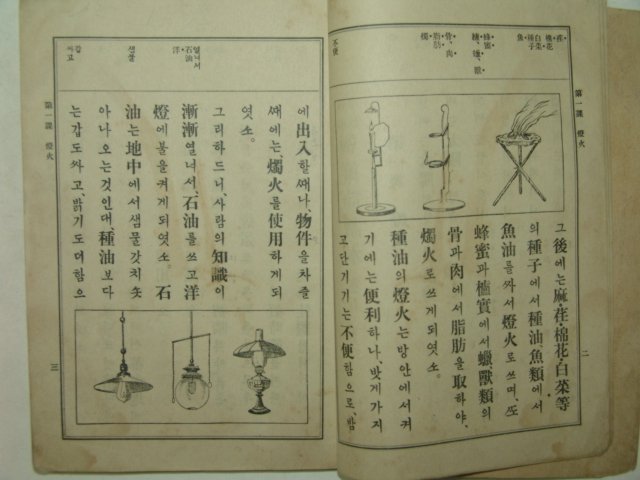 荏
棉花
白菜
種子
魚
蜂蜜
獸
骨、肉
脂肪
燭
不便
第一課 燈火
그後에는麻·荏·棉花·白菜等
의種子에서種油、魚類에서
魚油를짜서燈火로쓰며、ᄯᅩ
蜂蜜과櫨實에서蠟、獸類의
骨과肉에서脂肪을取하야、
燭火로쓰게되엿소。
種油의燈火는방안에서켜
기에는便利하나、밧게가지
고단기기는不便함으로、밤
二
열녀서
石油
洋
샘물
갑
싸고
第一課 燈火
에出入할ᄯᅢ나、物件을차즐
ᄯᅢ에는、燭火를使用하게되
엿소。
그리하드니、사람의知識이
漸漸열녀서、石油를쓰고洋
燈에불을켜게되엿소。石
油는地中에서샘물갓치솟
아나오는것인대、種油보다
는갑도싸고、밝기도더함으
三